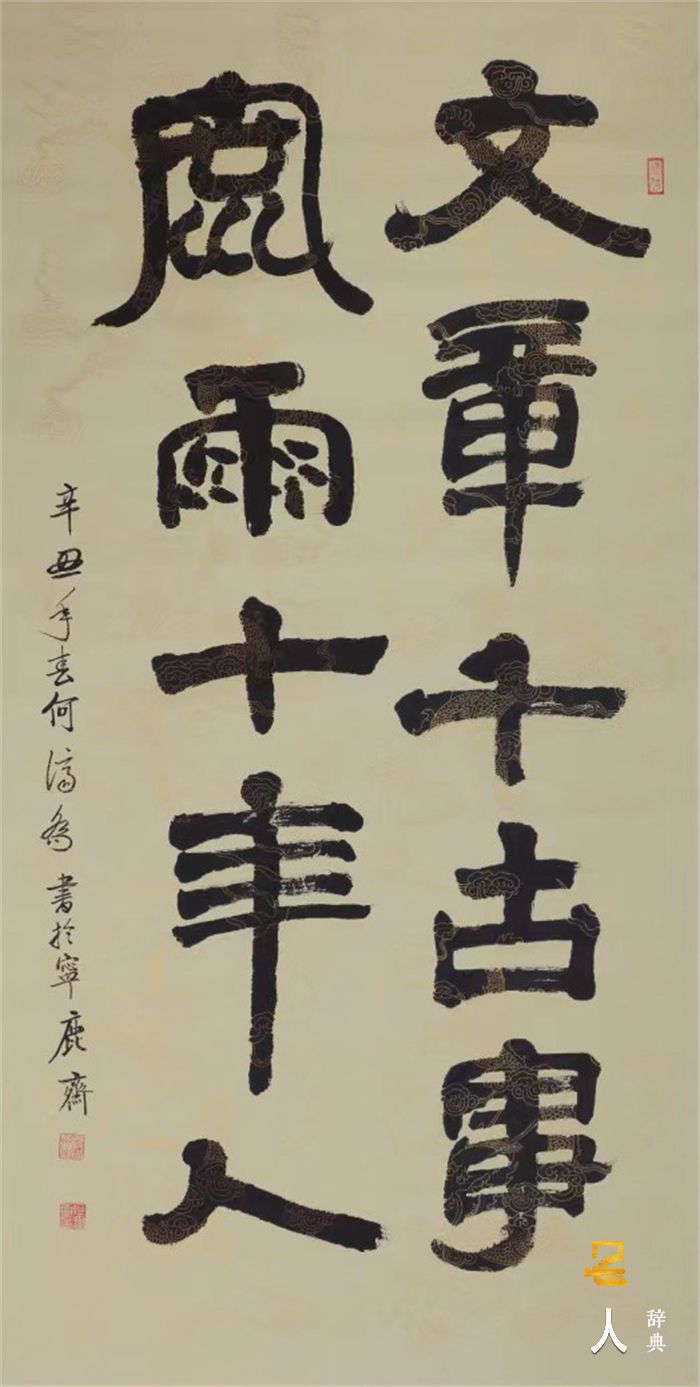 文章千古事
風雨十年人
辛丑年春何書於寧鹿齋
名人
辞典